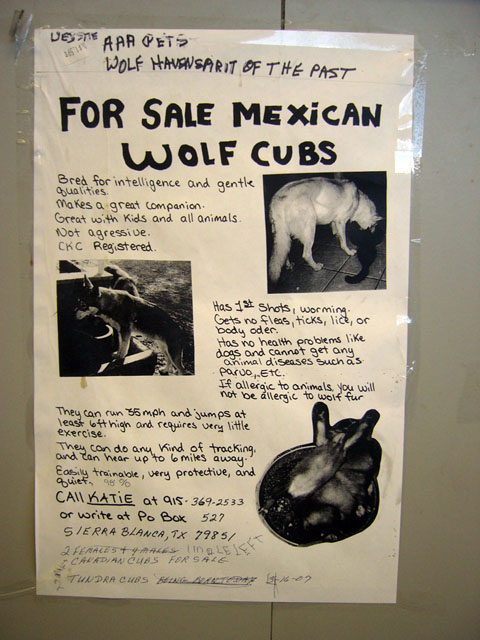 JESSIE AAA PETS
WOLF HAVEN SPIRIT OF THE PAST
FOR SALE MEXICAN
WOLF CUBS
Bred for intelligence and gentle
qualities.
Makes a great companion.
Great with Kids and all animals.
Not agressive.
CKC Registered.
Has 1st Shots, worming.
Gets no fleas, ticks, lice, or
body oder.
Has no health problems like
dogs and cannot get any
animal diseases such as
parvo, ETC.
If allergic to animals, you will
not be allergic to wolf fur
They can run 35 mph and jumps at
least 6ft high and requires very little
exercise.
They can do any Kind of tracking,
and can hear up to 6 miles away.
Easily trainable, very protective, and
quiet. 98%
CALL KATIE at 915-369-2533
or write at Po Box 527
SIERRA BLANCA, TX 79851
2 FEMALES + 4 MALES LEFT
CANADIAN CUBS FOR SALE
TUNDRA CUBS